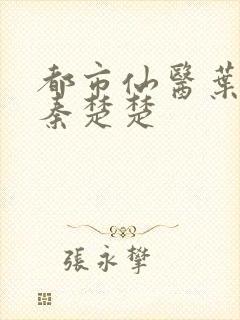 都市仙醫葉
秦楚楚
張永攀